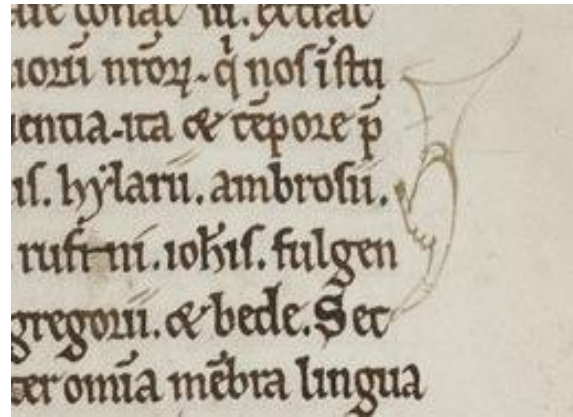 uorū nr̄oꝝ. q̇ nos īstu
entia. ita & tēpore p̄
is. hẏlarii. ambrosii.
rufini. ioh̄is. fulgen
gregorii. & bede. Sec
omīa mēbra lingua